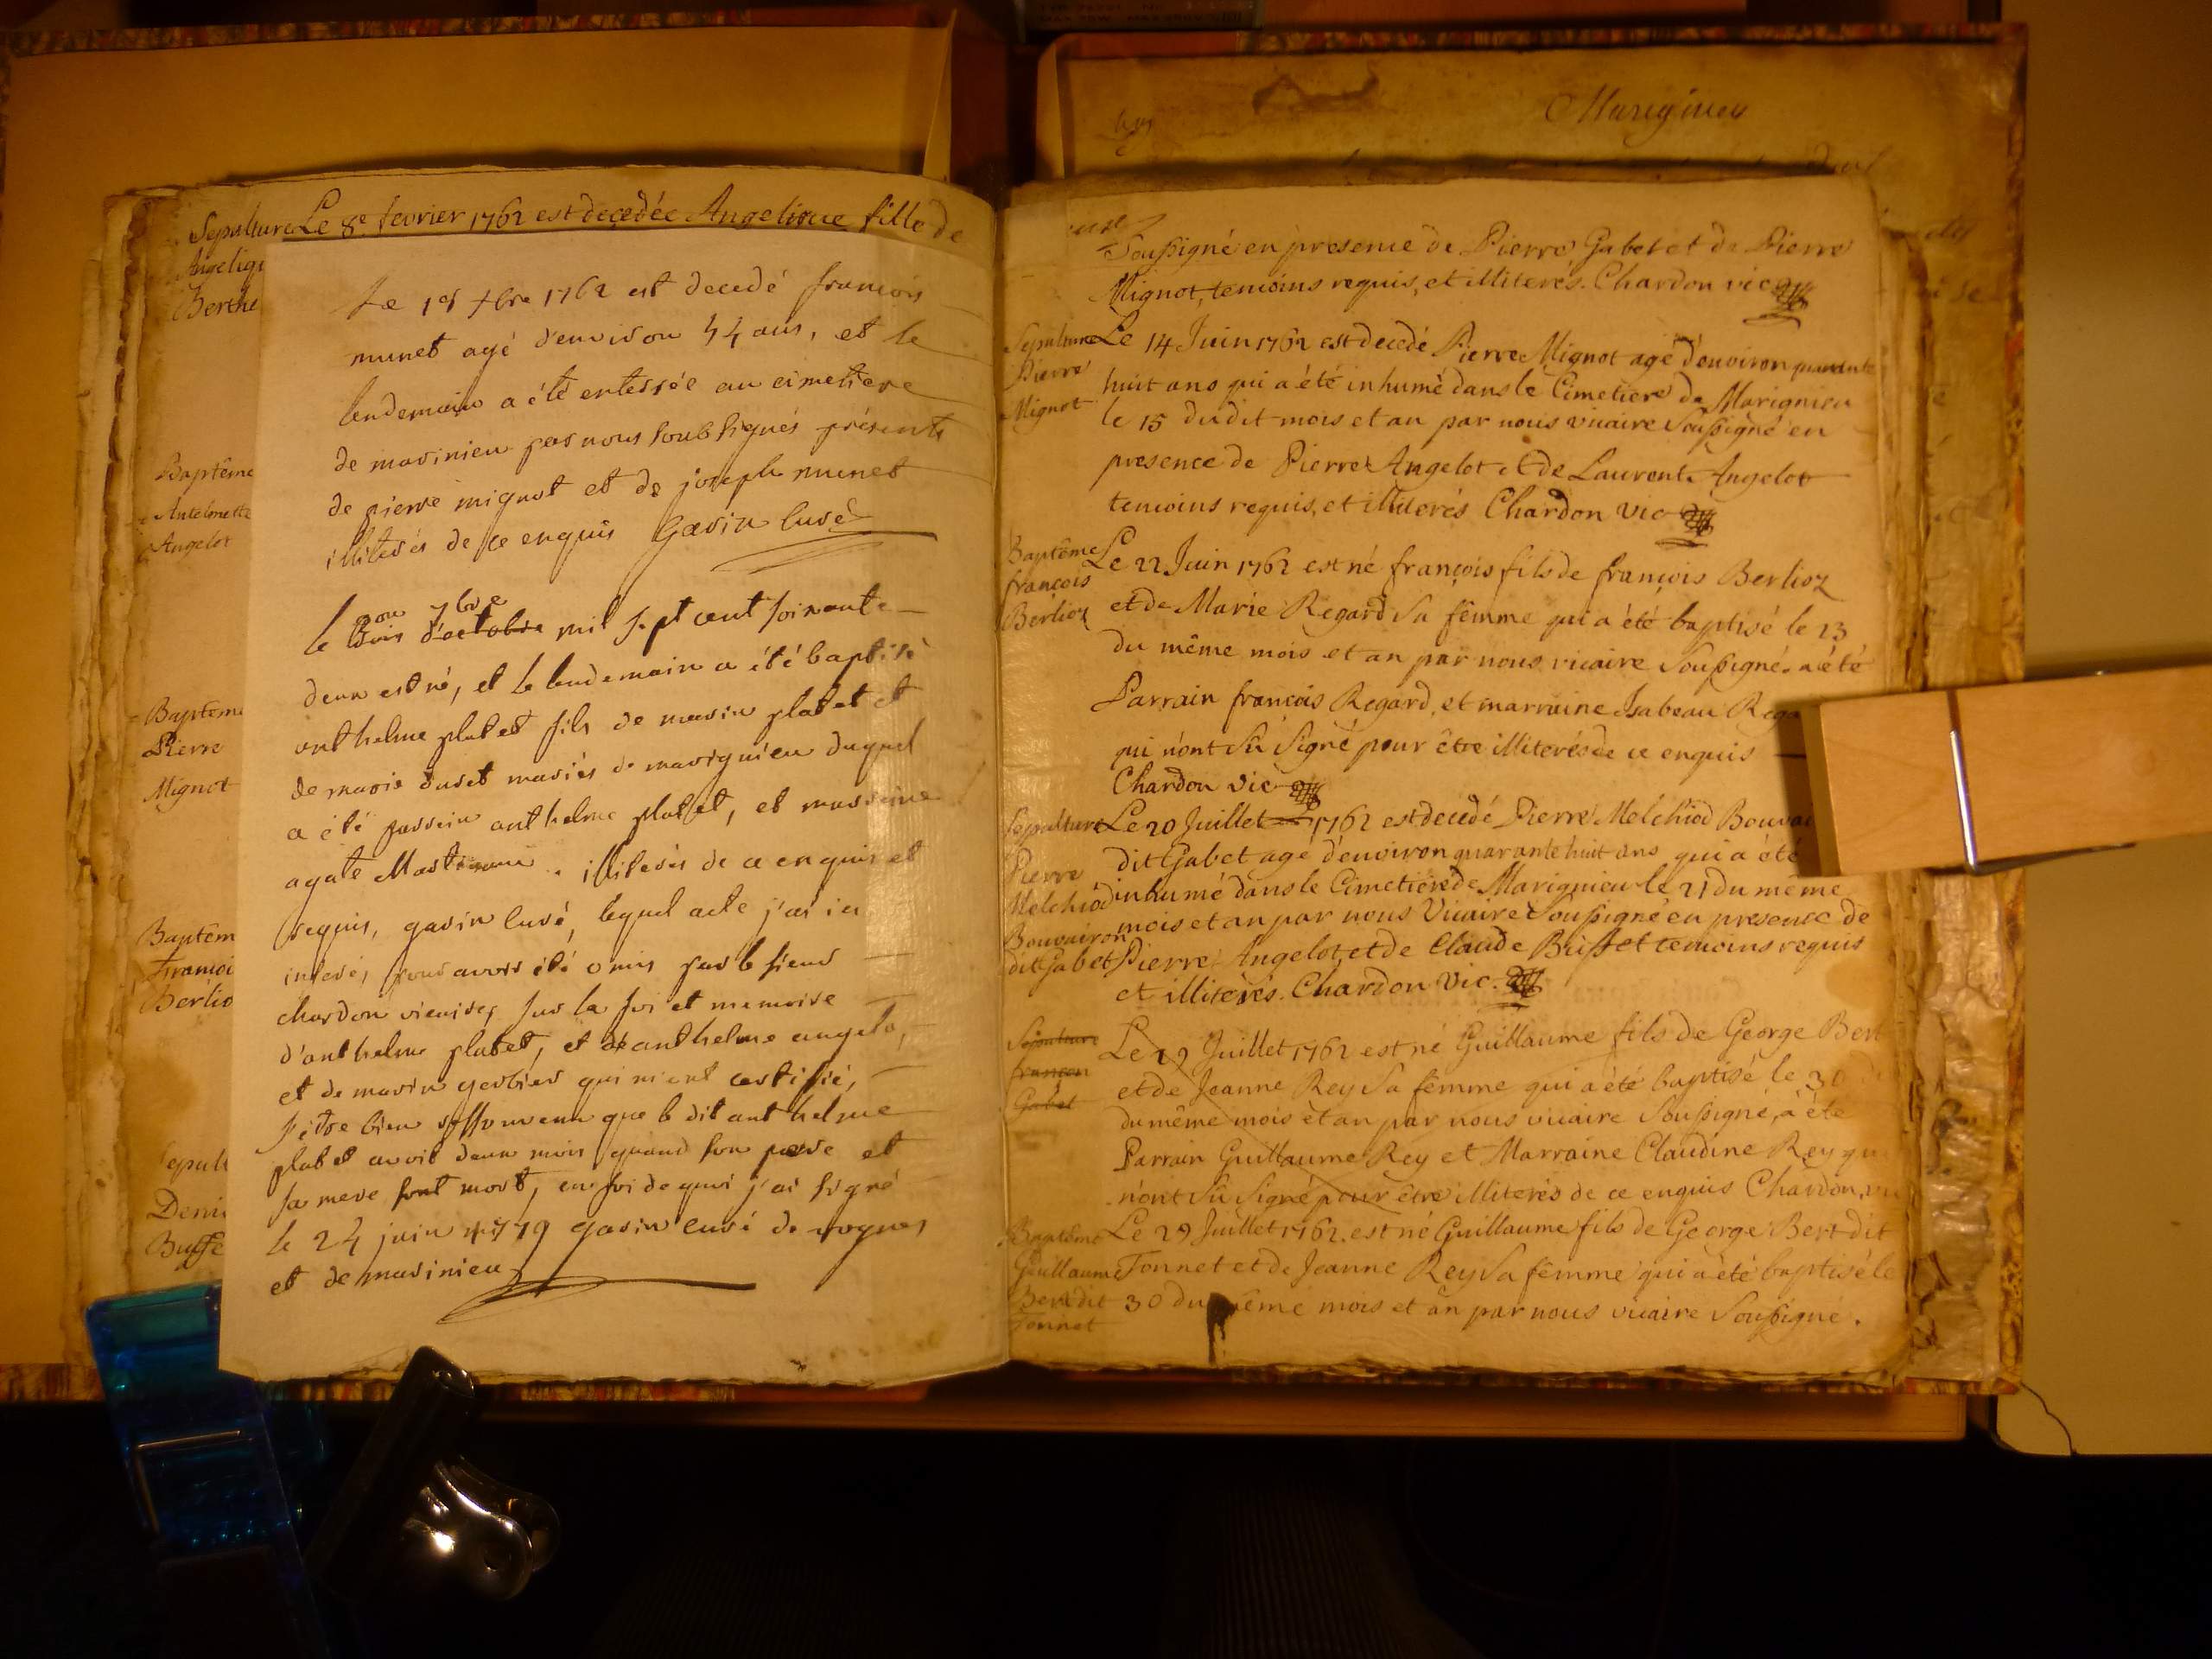 Sepulture Le 8e fevrier 1762 est decedée Angelique fille de
Angeliq
Berthe
Baptême
Antelmette
Angelot
Baptem
Pierre
Mignot
Baptêm
francoi
Berlio
epult
Deni
Buffe
Le 1er Xbre 1762 est decedé francois
munet agé d'environ 44 ans, et le
lendemain a été enterrée au cimetiere
de marinieu par nous soubsignés présents
de pierre mignot et de joseph munet
illiterés de ce enquis Gavin Curé
ou 7bre
le trois d'octobre mil sept cent soixante
deux est né, et le lendemain a été baptisé
anthelme platet fils de marin platet et
de marie duset mariés de marignieu duquel
a été parrein anthelme platet, et marreine
agate . illiterés de ce enquis et
requis, gavin Curé, lequel acte j'ai ici
inseré, pour avoir été omis par le sieur
chardon vicaire, sur la foi et memoire
d'anthelme platet, et de anthelme angelo,
et de marin gerbier qui m'ont certifié,
s'être bien que le dit anthelme
platet avoit deux mois quand son pere et
sa mere sont mort, en foi de quoi j'ai signé
le 24 juin 1779 gavin curé de
et de marinieu
Marignieu
Soussigné en presence de Pierre Gabet et de Pierre
Mignot, temoins requis, et illiterés. Chardon vic
Sepulture
Pierre
Mignot
Le 14 Juin 1762 est decedé Pierre Mignot agé d'environ quarante
huit ans qui a été inhumé dans le Cimetiere de Marignieu
le 15 dudit mois et an par nous vicaire Soussigné en
presence de Pierre Angelot et de Laurent Angelot
temoins requis, et illiterés Chardon vic
Baptême
françois
Berlioz
Le 22 Juin 1762 est né françois fils de françois Berlioz
et de Marie Regard sa fêmme qui a été baptisé le 23
du même mois et an par nous vicaire Soussigné. a été
Parrain françois Regard, et marraine Isabeau Rega
qui n'ont sû Signé pour être illiterés de ce enquis
Chardon vic
Sepulture
Pierre
Melchiod
Bouvairon
dit Gabet
Le 20 Juillet 1762 est decedé Pierre Melchiod Bouvai
dit Gabet agé d'environ quarante huit ans qui a été
inhumé dans le Cimetiere de Marignieu le 21 du même
mois et an par nous Vicaire Soussigné en presence de
Pierre Angelot, et de Claude Buffet temoins requis
et illiterés. Chardon Vic.
Sepulture
francon
Gabet
Le 29 Juillet 1762 est né Guillaume fils de George Bert
et de Jeanne Rey sa fêmme qui a été baptisé le 30
du même mois et an par nous vicaire Soussigné, a été
Parrain Guillaume Rey et Marraine Claudine Rey qu
n'ont sû Signé pour être illiterés de ce enquis Chardon, vi
Baptême
Guillaume
Bert dit
Tonnet
Le 29 Juillet 1762. est né Guillaume fils de George Bert dit
Tonnet et de Jeanne Rey sa fêmme qui a été baptisé le
30 du même mois et an par nous vicaire Soussigné.